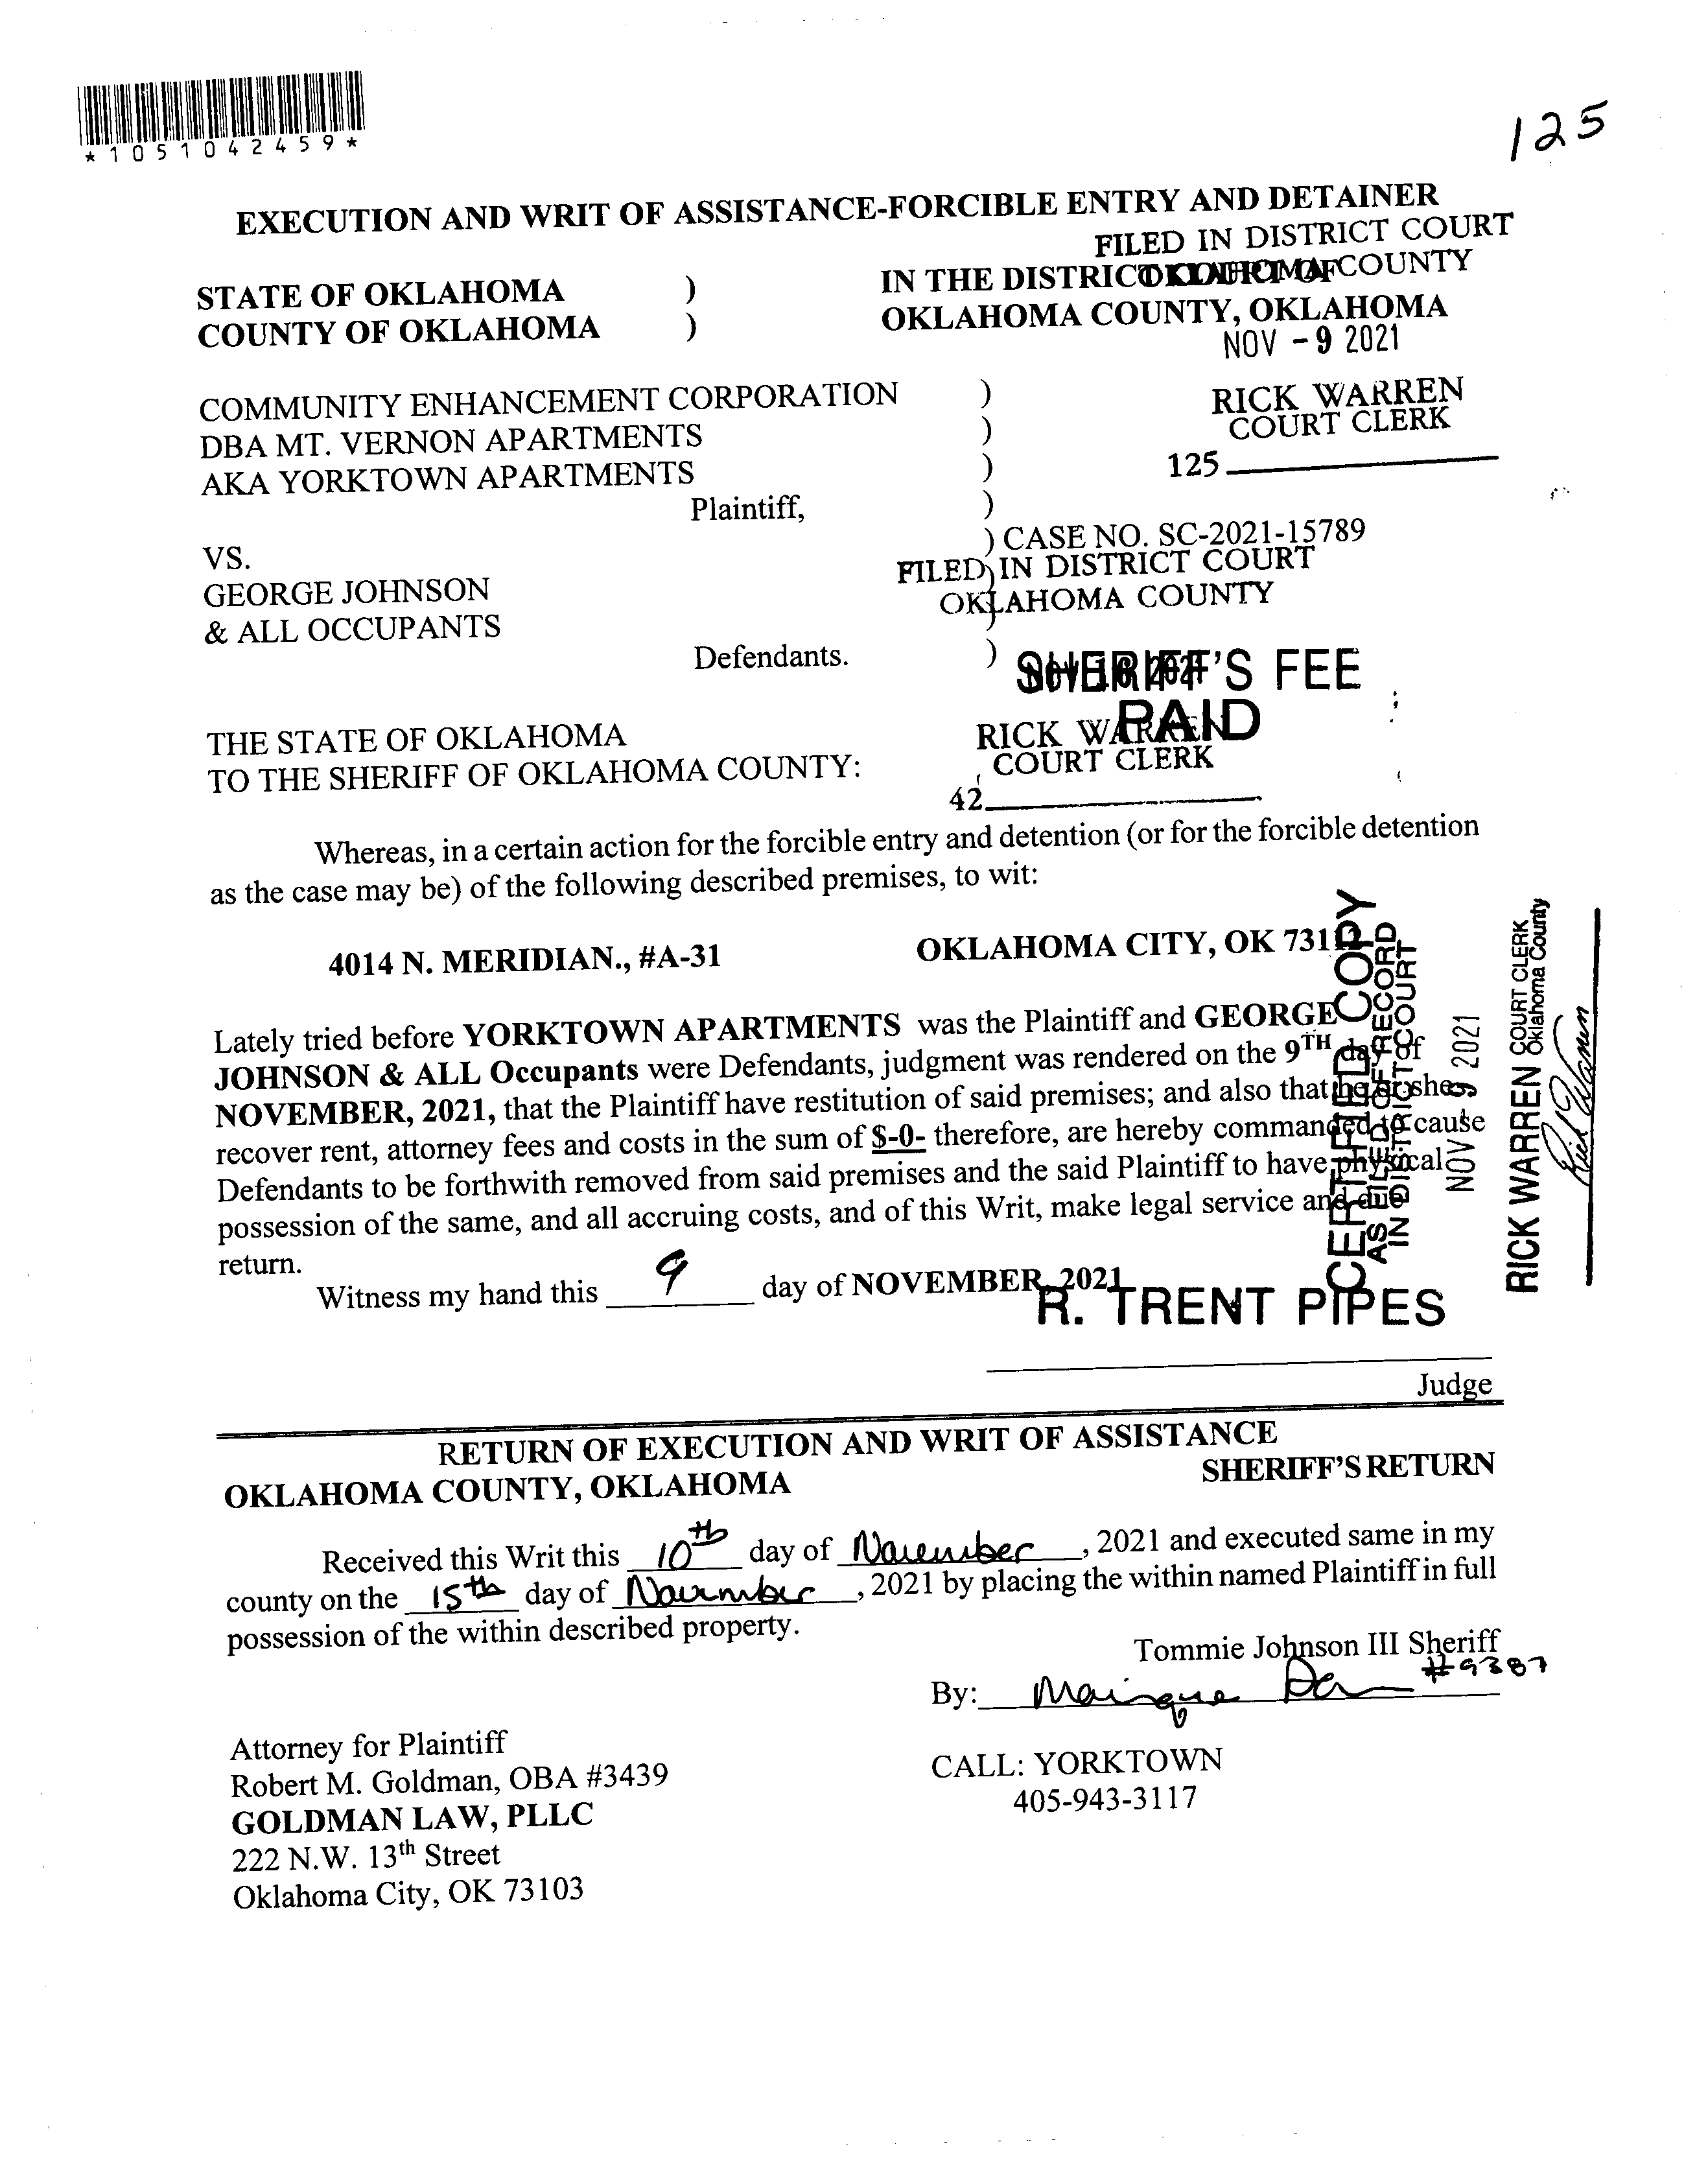 *1051042459*
125
EXECUTION AND WRIT OF ASSISTANCE-FORCIBLE ENTRY AND DETAINER
FILED IN DISTRICT COURT
OKLAHOMA COUNTY
STATE OF OKLAHOMA ) IN THE DISTRICT COURT OF
COUNTY OF OKLAHOMA ) OKLAHOMA COUNTY, OKLAHOMA
NOV - 9 2021
COMMUNITY ENHANCEMENT CORPORATION )
RICK WARREN
COURT CLERK
DBA MT. VERNON APARTMENTS )
AKA YORKTOWN APARTMENTS )
125
Plaintiff, )
) CASE NO. SC-2021-15789
VS.
FILED IN DISTRICT COURT
OKLAHOMA COUNTY
GEORGE JOHNSON )
& ALL OCCUPANTS )
Defendants. )
SHERIFF'S FEE
PAID
NOV 16 2021
RICK WARREN
COURT CLERK
42
THE STATE OF OKLAHOMA
TO THE SHERIFF OF OKLAHOMA COUNTY:
Whereas, in a certain action for the forcible entry and detention (or for the forcible detention
as the case may be) of the following described premises, to wit:
4014 N. MERIDIAN., #A-31 OKLAHOMA CITY, OK
Lately tried before YORKTOWN APARTMENTS was the Plaintiff and GEORGE
JOHNSON & ALL Occupants were Defendants, judgment was rendered on the 9TH day of
NOVEMBER, 2021, that the Plaintiff have restitution of said premises; and also that he or she
recover rent, attorney fees and costs in the sum of $-0- therefore, are hereby commanded to cause
Defendants to be forthwith removed from said premises and the said Plaintiff to have physical
possession of the same, and all accruing costs, and of this Writ, make legal service and due
return.
Witness my hand this 9 day of NOVEMBER, 2021
R. TRENT PIPES
Judge
CERTIFIED COPY
AS FILED OF RECORD
IN DISTRICT COURT
NOV - 9 2021
RICK WARREN COURT CLERK
Oklahoma County
Rick Warren
RETURN OF EXECUTION AND WRIT OF ASSISTANCE
OKLAHOMA COUNTY, OKLAHOMA SHERIFF'S RETURN
Received this Writ this 10th day of November, 2021 and executed same in my
county on the 15th day of November, 2021 by placing the within named Plaintiff in full
possession of the within described property.
Tommie Johnson III Sheriff
By: #9387
Attorney for Plaintiff
Robert M. Goldman, OBA #3439
GOLDMAN LAW, PLLC
222 N.W. 13th Street
Oklahoma City, OK 73103
CALL: YORKTOWN
405-943-3117